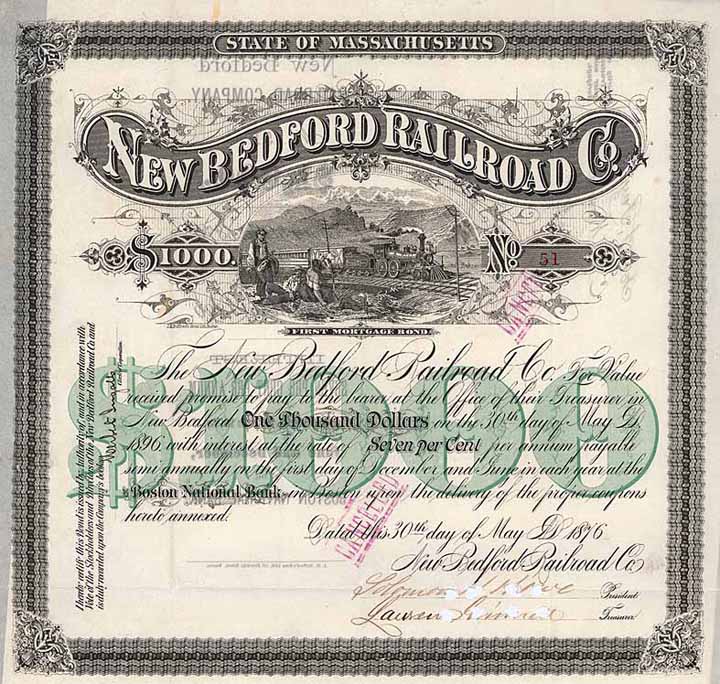 STATE OF MASSACHUSETTS
New Bedford
COMPANY
NEW BEDFORD RAILROAD CO.
$1000.
No 51
FIRST MORTGAGE BOND
$1000
The New Bedford Railroad Co. For Value
received promise to pay to the bearer at the Office of their Treasurer in
New Bedford One Thousand Dollars on the 30th day of May A.D.
1896 with interest at the rate of Seven per Cent per annum payable
semi annually on the first day of December and June in each year at the
Boston National Bank in Boston upon the delivery of the proper coupons
hereto annexed.
Dated this 30th day of May A.D. 1876
New Bedford Railroad Co.
President
Treasurer
CANCELLED
CANCELLED
I hereby certify that this Bond is issued by Authority of, and in accordance with
Vote of the Stockholders and Directors of the New Bedford Railroad Co. and
is duly recorded upon the Company's books.